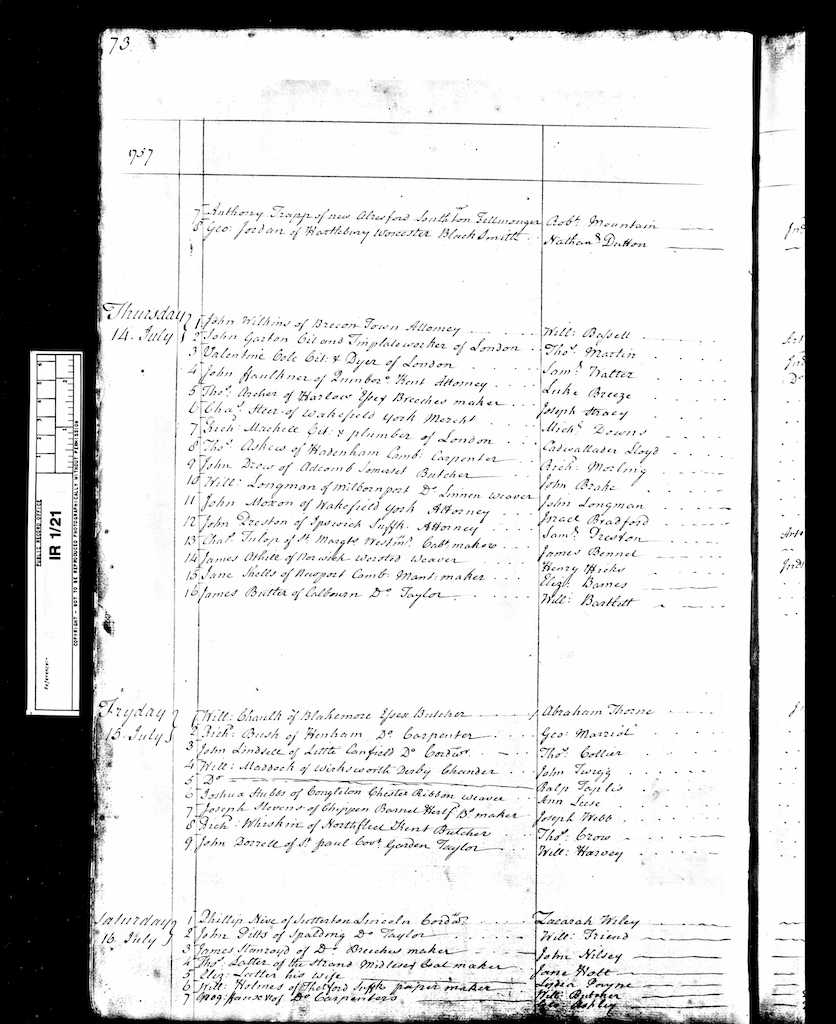 73
1757
7 Anthony Trapp of new Alresford South'ton Fellmonger Robt. Mountain
8 Geo: Jordan of Hartlebury Worcester Black Smith Nathanl. Dutton
Thursday 14 July
1 John Wilkins of Brecon Town Attorney Will: Bassell
2 John Garton Cit and Tinplateworker of London Tho: Martin
3 Valentine Cole Cit: & Dyer of London Saml.
4 John Faulkner of Quinboro Kent Attorney Luke Breeze
5 Tho: Archer of Harlow Essex Breeches maker Joseph
6 Chas. Steer of Wakefield York Mercht. Michl. Downs
7 Richd. Machell Cit: & plumber of London Cadwallader Lloyd
8 Tho: Askew of Hadenham Camb: Carpenter Rich: Morling
9 John Drew of Adcomb Somerset Butcher John Brake
10 Will: Longman of Milbornport Do. Linnen weaver John Longman
11 John Moxon of Wakefield York Attorney Israel Bradford
12 John Preston of Ipswich Suffk. Attorney Saml. Preston
13 Chas. Tulop of St. Margts. Westmr. Cabt. maker James Bennet
14 James White of Norwich worsted weaver Henry Hicks
15 Jane Shells of Newport Camb: Mant: maker Eliz: Barnes
16 James Butter of Calbourn Do. Taylor Will: Bartlett
Fryday 15 July
1 Will: Chaulk of Blakemore Essex Butcher Abraham Thorne
2 Richd. Bush of Henham Do. Carpenter Geo: Marriot
3 John Lindsell of Little Canfield Do. Cordwr. Tho: Collier
4 Will: Maddock of Wirksworth Derby Chandler John Twigg
5 Do. Ralp Taplis
6 Joshua Stubbs of Congleton Chester Ribbon weaver Ann Leese
7 Joseph Stevens of Chippen Barnet Hertf. Bt. maker Joseph Webb
8 Richd. Whiskin of Northfleet Kent Butcher Tho: Crow
9 John Dorrell of St. paul Covt. Garden Taylor Will: Harvey
Saturday 16 July
1 Phillip Hive of Sutterton Lincoln Cordwr. Zacarah Wiley
2 John Pitts of Spalding Do. Taylor Will: Friend
3 James Stanroyd of Do. Breeches maker John Hilsey
4 Tho: Latter of the Strand Midlesex Coal maker Jane Holt
5 Eliz: Latter his wife Lydia Payne
6 Will: Holmes of Thetford Suffk. paper maker Will: Butcher
7 of Do. Carpenters Ashley
PUBLIC RECORD OFFICE
IR 1/21
Reference:-
COPYRIGHT - NOT TO BE REPRODUCED PHOTOGRAPHICALLY WITHOUT PERMISSION